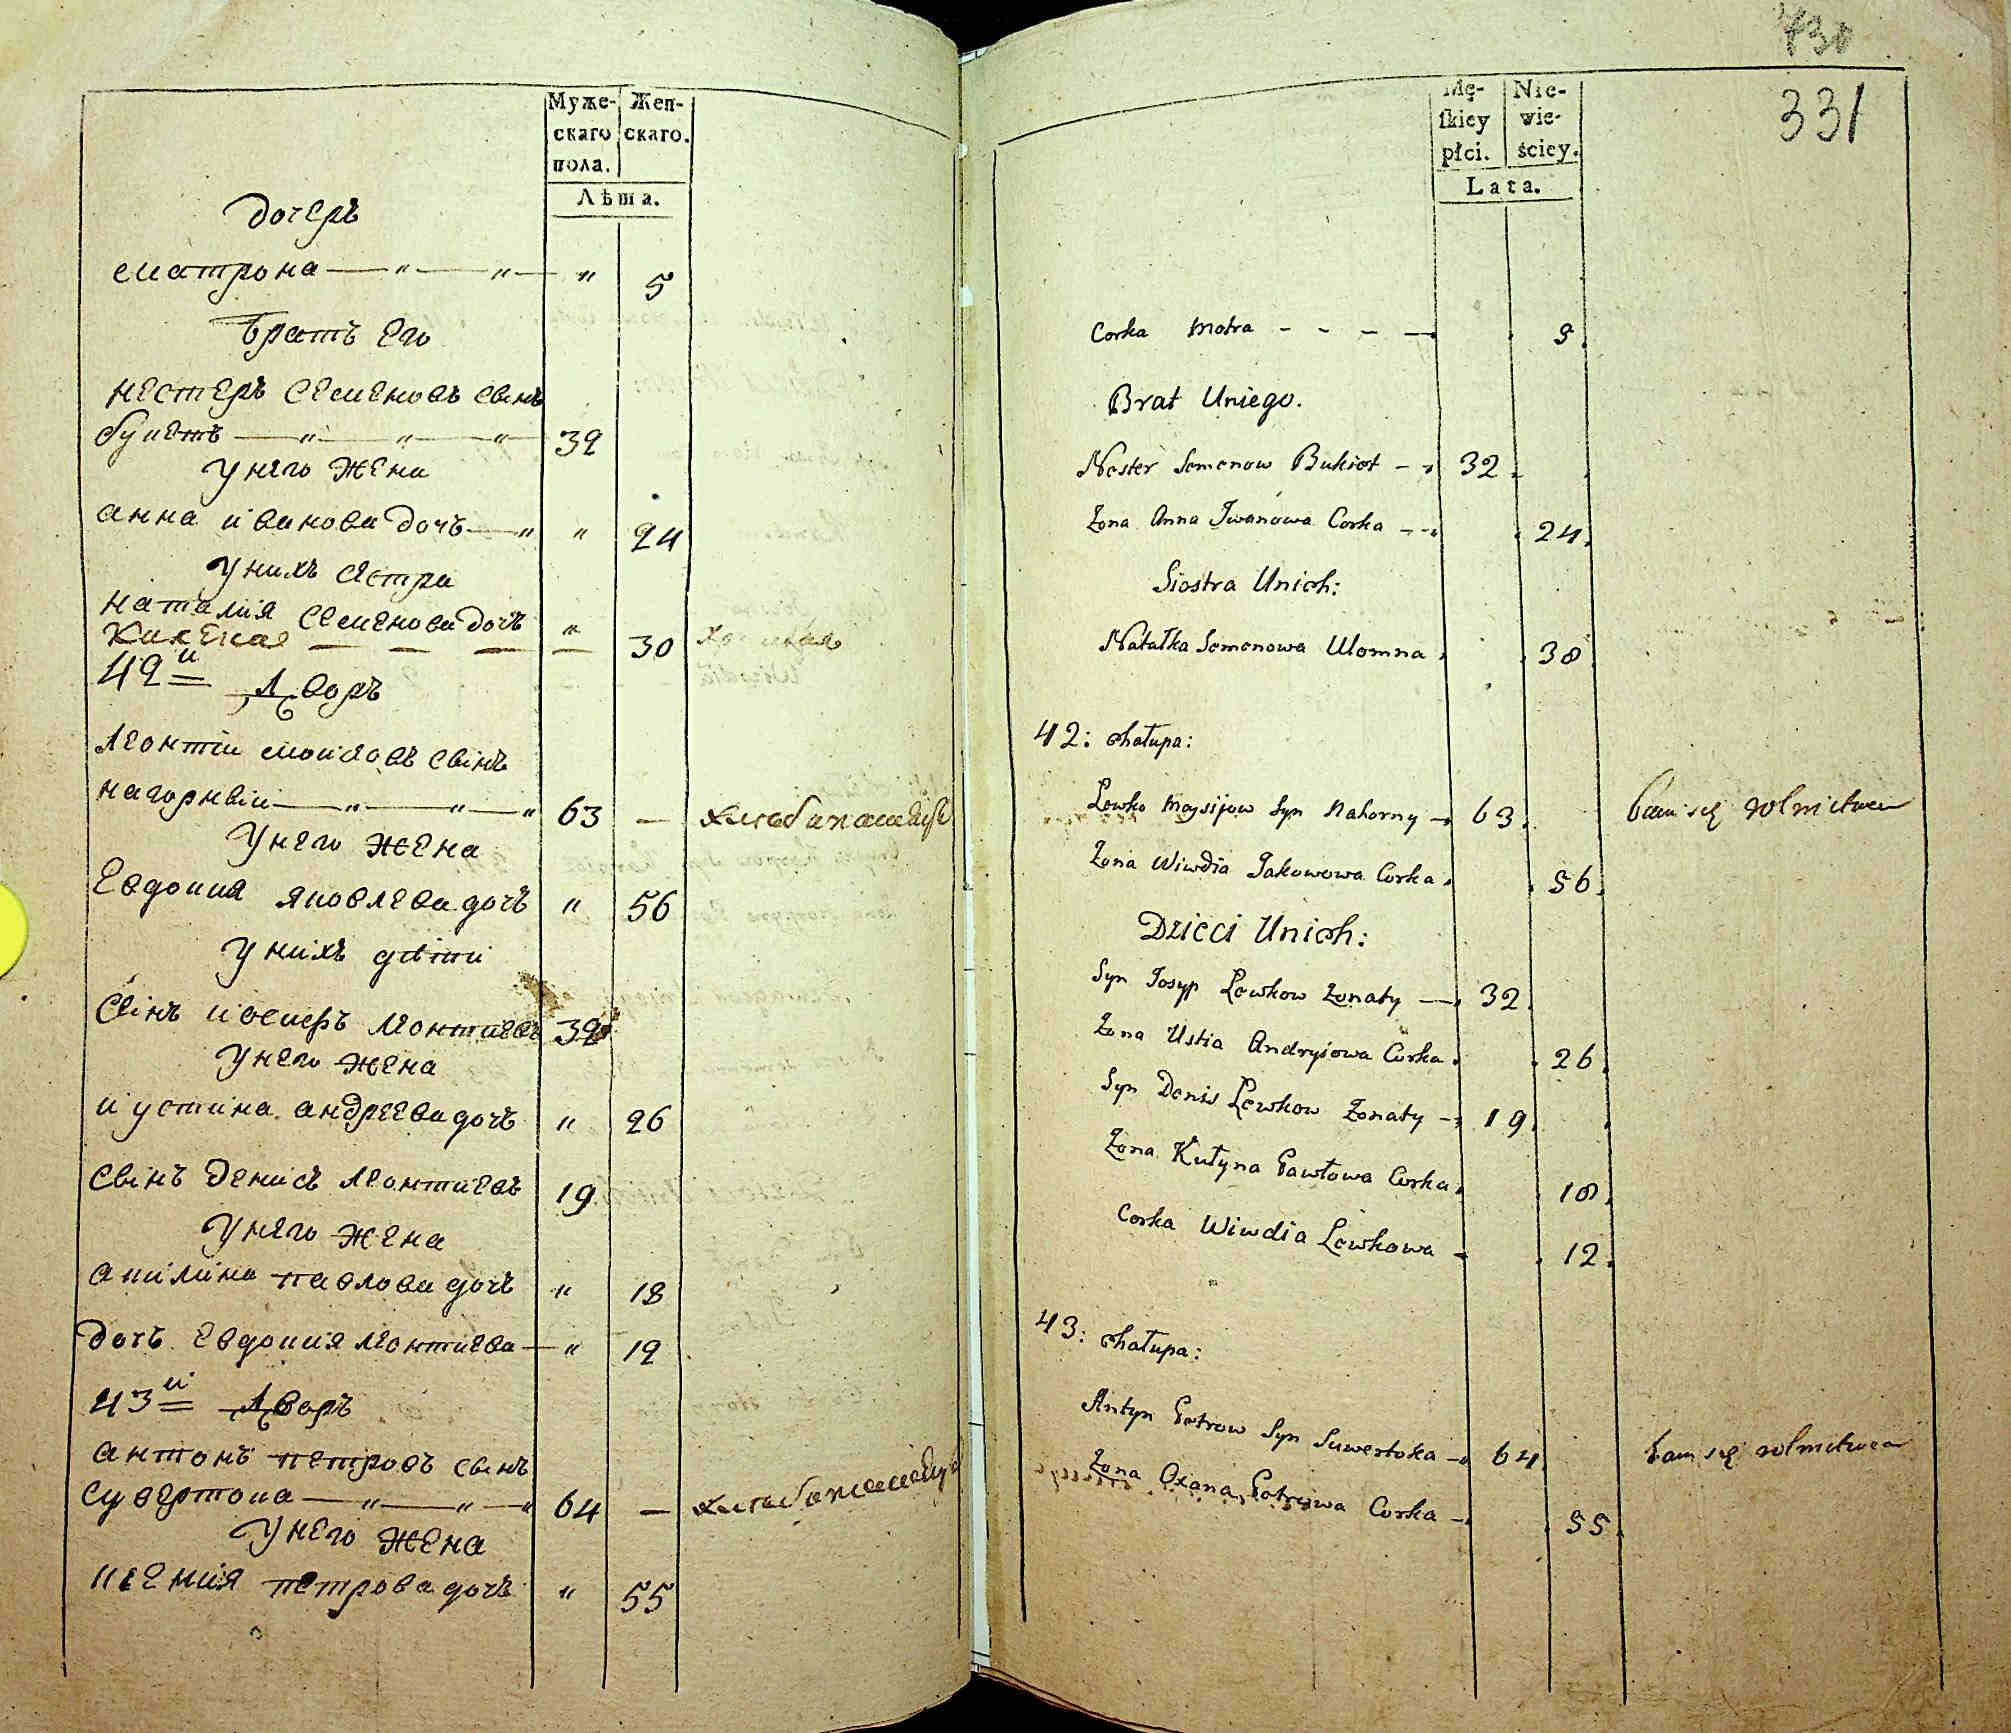 Муже-
скаго
пола.
Жен-
скаго.
Лѣта.
дочеръ
матрона — " — " — " 5
братъ Его
нестеръ семеновъ свінъ
букетъ — " — " — " 32
унего жена
анна иванова дочъ — " " 24
унихъ сестра
наталия семенова дочъ "
— — — — 30
42й Дворъ
леонтіи моисѣевъ свінъ
нагорнвіи — " — " — " 63 — хлебопашецъ
унего жена
Евдокия яковлева дочъ " 56
унихъ дѣти
свінъ иосифъ леонтиевъ 32
унего жена
иустина андреева дочъ " 26
свінъ денисъ леонтиевъ 19
унего жена
акилина павлова дочъ " 18
дочъ Евдокия леонтиева — " 12
43й Дворъ
антонъ петровъ свінъ
сувертока — " — " — " 64 — хлебопашецъ
унего жена
ксения петрова дочъ " 55
331
Mę-
skiey
płci.
Nie-
wie-
ściey.
Lata.
Corka Motra - - - — 5.
Brat Uniego.
Nester Semenow Bukiet 32.
Zona Anna Iwanowa Corka 24.
Siostra Unich:
Natałka Semenowa Ułomna 30
42: Chałupa:
Lewko Moysijow Syn Nahorny 63. bawi się rolnictwem
Zona Wiwdia Jakowowa Corka 56.
Dzieci Unich:
Syn Josyp Lewkow Zonaty 32.
Zona Ustia Andryiowa Corka 26.
Syn Denis Lewkow Zonaty 19.
Zona Kułyna Pawłowa Corka 18.
Corka Wiwdia Lewkowa 12.
43: Chałupa:
Antyn Petrow Syn Suwertoka 64. bawi się rolnictwem
Zona Oxana Petrowa Corka 55.